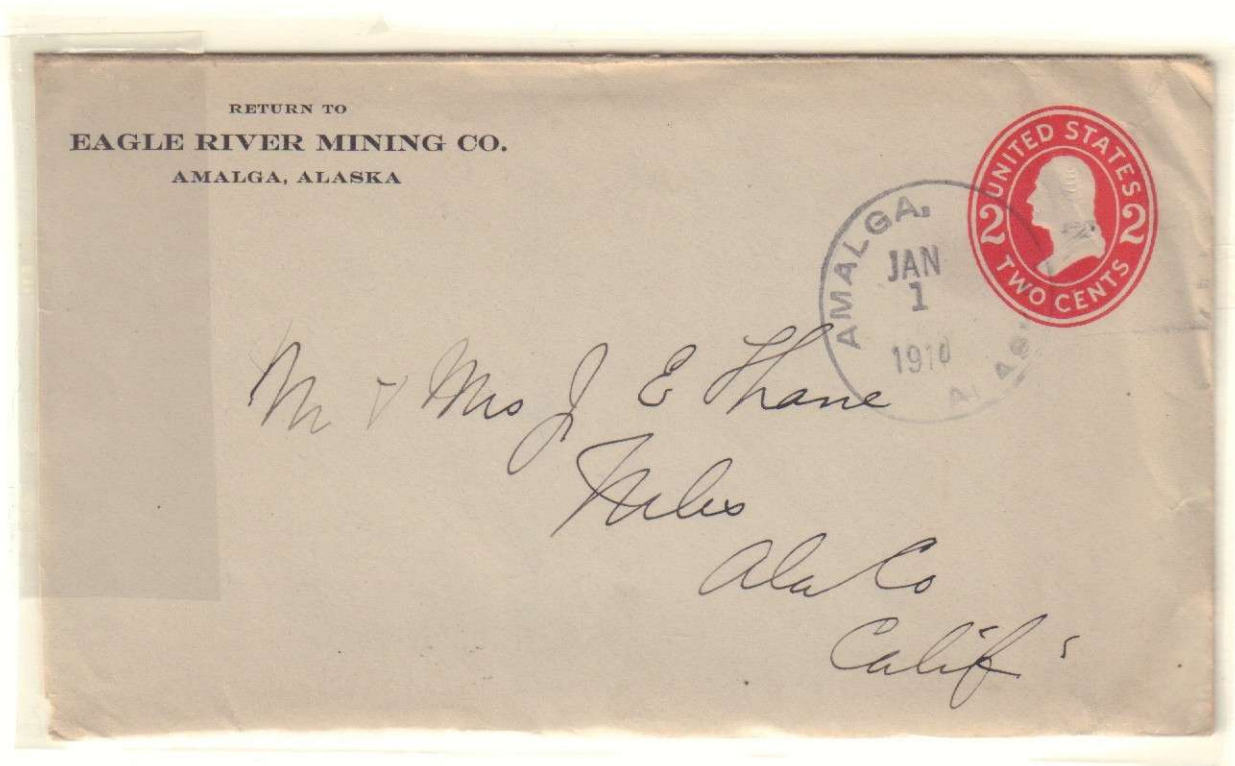 RETURN TO
EAGLE RIVER MINING CO.
AMALGA, ALASKA
UNITED STATES
2 2
TWO CENTS
AMALGA,
JAN
1
1910
ALAS.
Mr & Mrs J E Thane
Niles
Ala Co
Calif